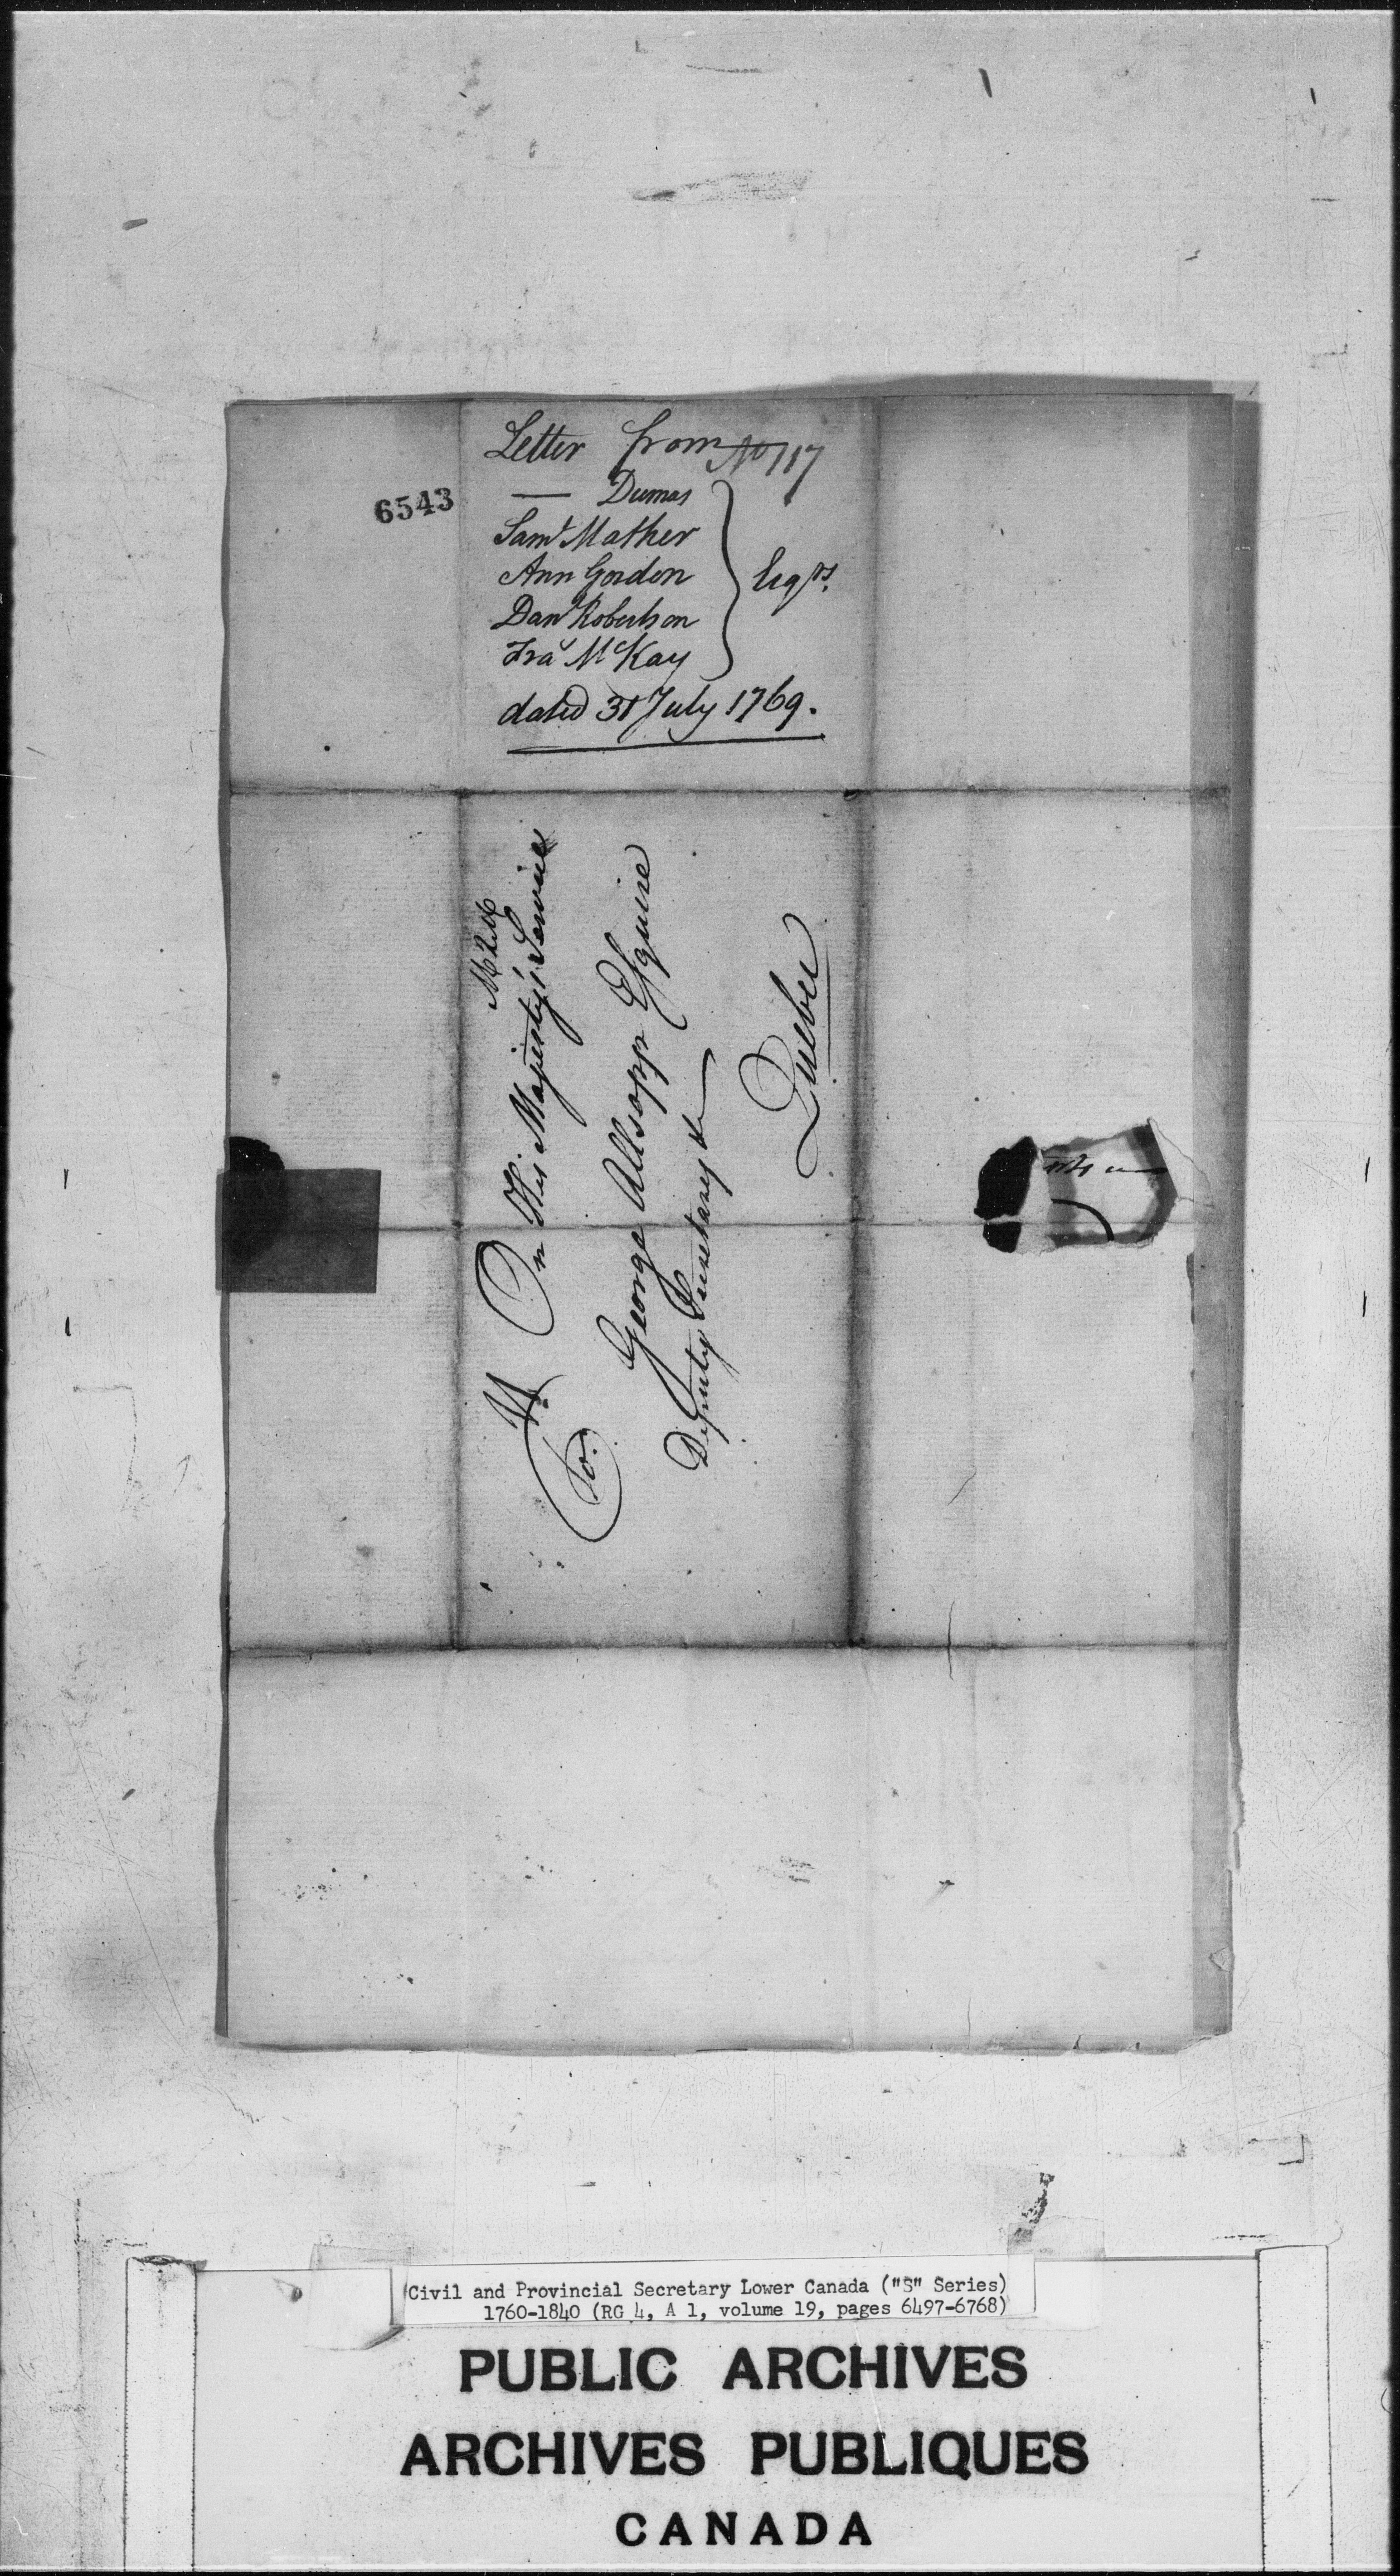 Letter from No 117
6543
— Dumas
Saml Mather
Ann Gordon
Danl Robertson
Fra McKay
Esqrs.
dated 31 July 1769.
On His Majesty's Service
To.
George Allsopp Esquire
Deputy Secretary &
Quebec
Civil and Provincial Secretary Lower Canada ("S" Series)
1760-1840 (RG 4, A 1, volume 19, pages 6497-6768)
PUBLIC ARCHIVES
ARCHIVES PUBLIQUES
CANADA